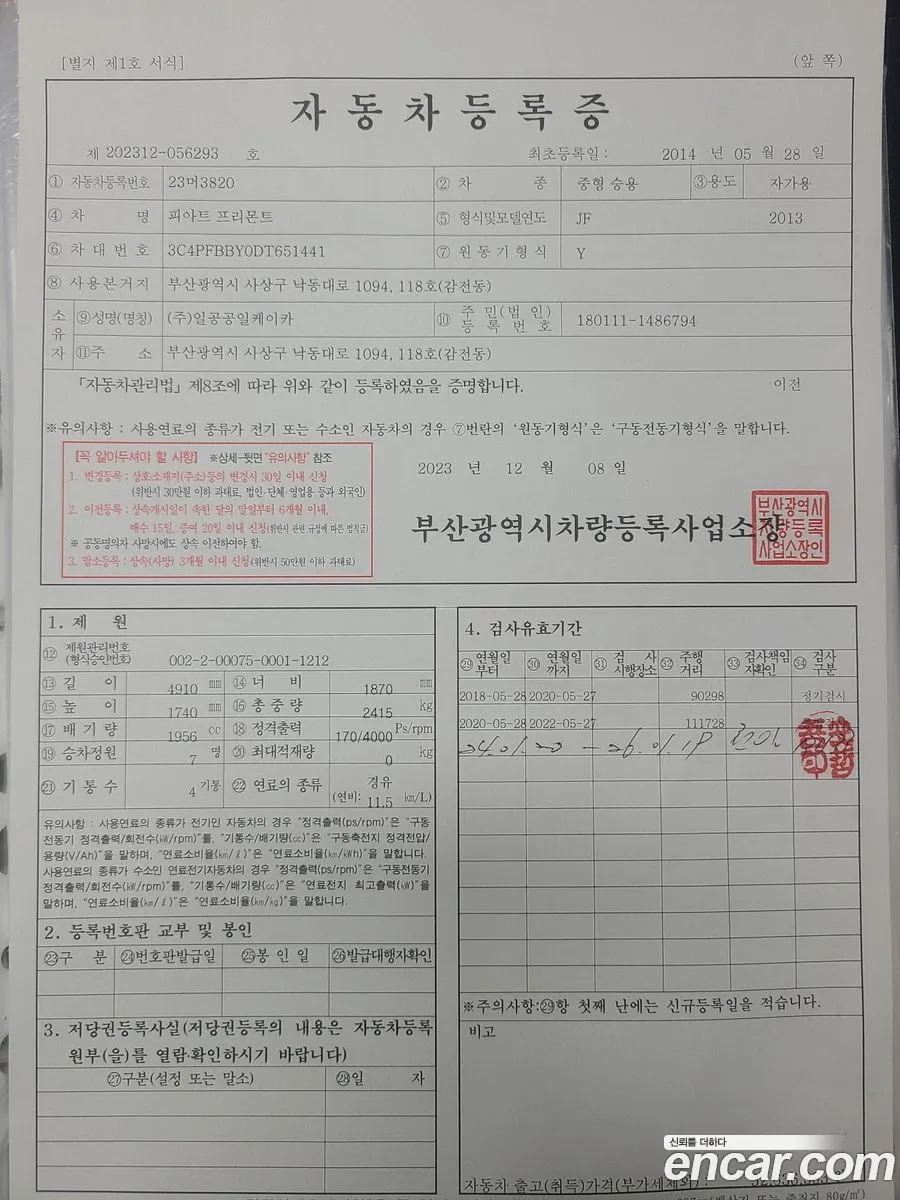 [별지 제1호 서식] (앞 쪽)
자 동 차 등 록 증
제 202312-056293 호 최초등록일 : 2014 년 05 월 28 일
① 자동차등록번호 23머3820 ② 차 종 중형 승용 ③용도 자가용
④ 차 명 피아트 프리몬트 ⑤ 형식및모델연도 JF 2013
⑥ 차 대 번 호 3C4PFBBY0DT651441 ⑦ 원 동 기 형 식 Y
⑧ 사 용 본 거 지 부산광역시 사상구 낙동대로 1094, 118호(감전동)
소유자 ⑨성명(명칭) (주)일공공일케이카 ⑩ 주 민 (법 인) 등 록 번 호 180111-1486794
⑪주 소 부산광역시 사상구 낙동대로 1094, 118호(감전동)
「자동차관리법」 제8조에 따라 위와 같이 등록하였음을 증명합니다. 이전
※유의사항 : 사용연료의 종류가 전기 또는 수소인 자동차의 경우 ⑦번란의 '원동기형식'은 '구동전동기형식'을 말합니다.
[꼭 알아두셔야 할 사항] ※상세-뒷면 "유의사항" 참조
1. 변경등록 : 상호·소재지(주소)등의 변경시 30일 이내 신청
(위반시 30만원 이하 과태료, 법인·단체·영업용 등과 외국인)
2. 이전등록 : 상속개시일이 속한 달의 말일부터 6개월 이내,
매수 15일, 증여 20일 이내 신청(위반시 관련 규정에 따른 범칙금)
※ 공동명의자 사망시에도 상속 이전하여야 함.
3. 말소등록 : 상속(사망) 3개월 이내 신청(위반시 50만원 이하 과태료)
2023 년 12 월 08 일
부산광역시차량등록사업소장
부산광역시
차량등록
사업소장인
1. 제 원
⑫ 제원관리번호 (형식승인번호) 002-2-00075-0001-1212
⑬ 길 이 4910 mm ⑭ 너 비 1870 mm
⑮ 높 이 1740 mm ⑯ 총 중 량 2415 kg
⑰ 배 기 량 1956 cc ⑱ 정격출력 170/4000 Ps/rpm
⑲ 승차정원 7 명 ⑳ 최대적재량 0 kg
㉑ 기 통 수 4 기통 ㉒ 연료의 종류 경유 (연비: 11.5 km/L)
유의사항 : 사용연료의 종류가 전기인 자동차의 경우 "정격출력(ps/rpm)"은 "구동
전동기 정격출력/회전수(kW/rpm)"를, "기통수/배기량(cc)"은 "구동축전지 정격전압/
용량(V/Ah)"을 말하며, "연료소비율(km/ℓ)"은 "연료소비율(km/kWh)"을 말합니다.
사용연료의 종류가 수소인 연료전기자동차의 경우 "정격출력(ps/rpm)"은 "구동전동기
정격출력/회전수(kW/rpm)"를, "기통수/배기량(cc)"은 "연료전지 최고출력(kW)"을
말하며, "연료소비율(km/ℓ)"은 "연료소비율(km/kg)"을 말합니다.
2. 등록번호판 교부 및 봉인
㉓구 분 ㉔번호판발급일 ㉕봉 인 일 ㉖발급대행자확인
3. 저당권등록사실(저당권등록의 내용은 자동차등록
원부(을)를 열람·확인하시기 바랍니다)
㉗구분(설정 또는 말소) ㉘일 자
4. 검사유효기간
㉙ 연월일 부터 ㉚ 연월일 까지 ㉛ 검 사 시행장소 ㉜ 주행 거리 ㉝ 검사책임 자확인 ㉞ 검사 구분
2018-05-28 2020-05-27 90298 정기검사
2020-05-28 2022-05-27 111728
24.01.20 - 26.01.19
※주의사항:㉙항 첫째 난에는 신규등록일을 적습니다.
비고
자동차 출고(취득)가격(부가세제외) :
신뢰를 더하다
encar.com